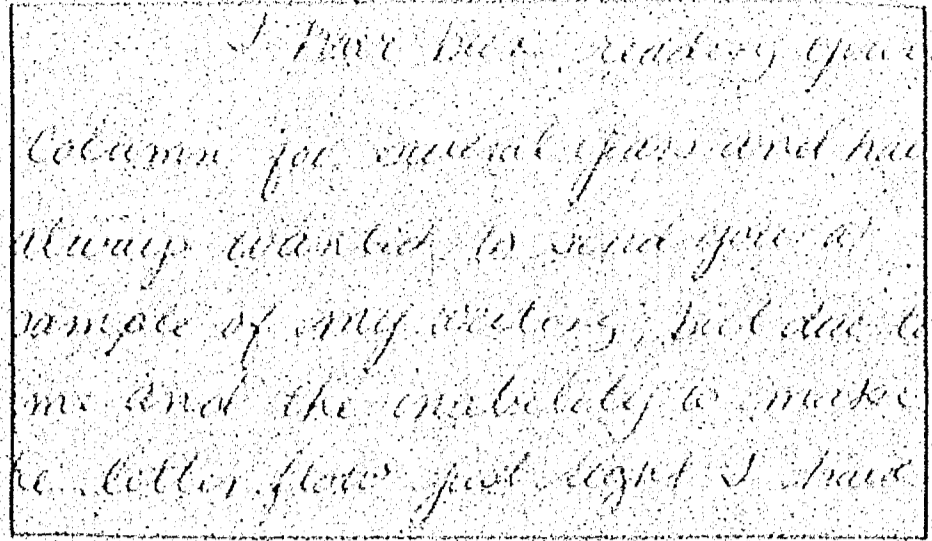 I have been reading your
column for several years and hav
always wanted to send you a
sample of my writing, but due to
me and the inability to make
he letter flow just right I have